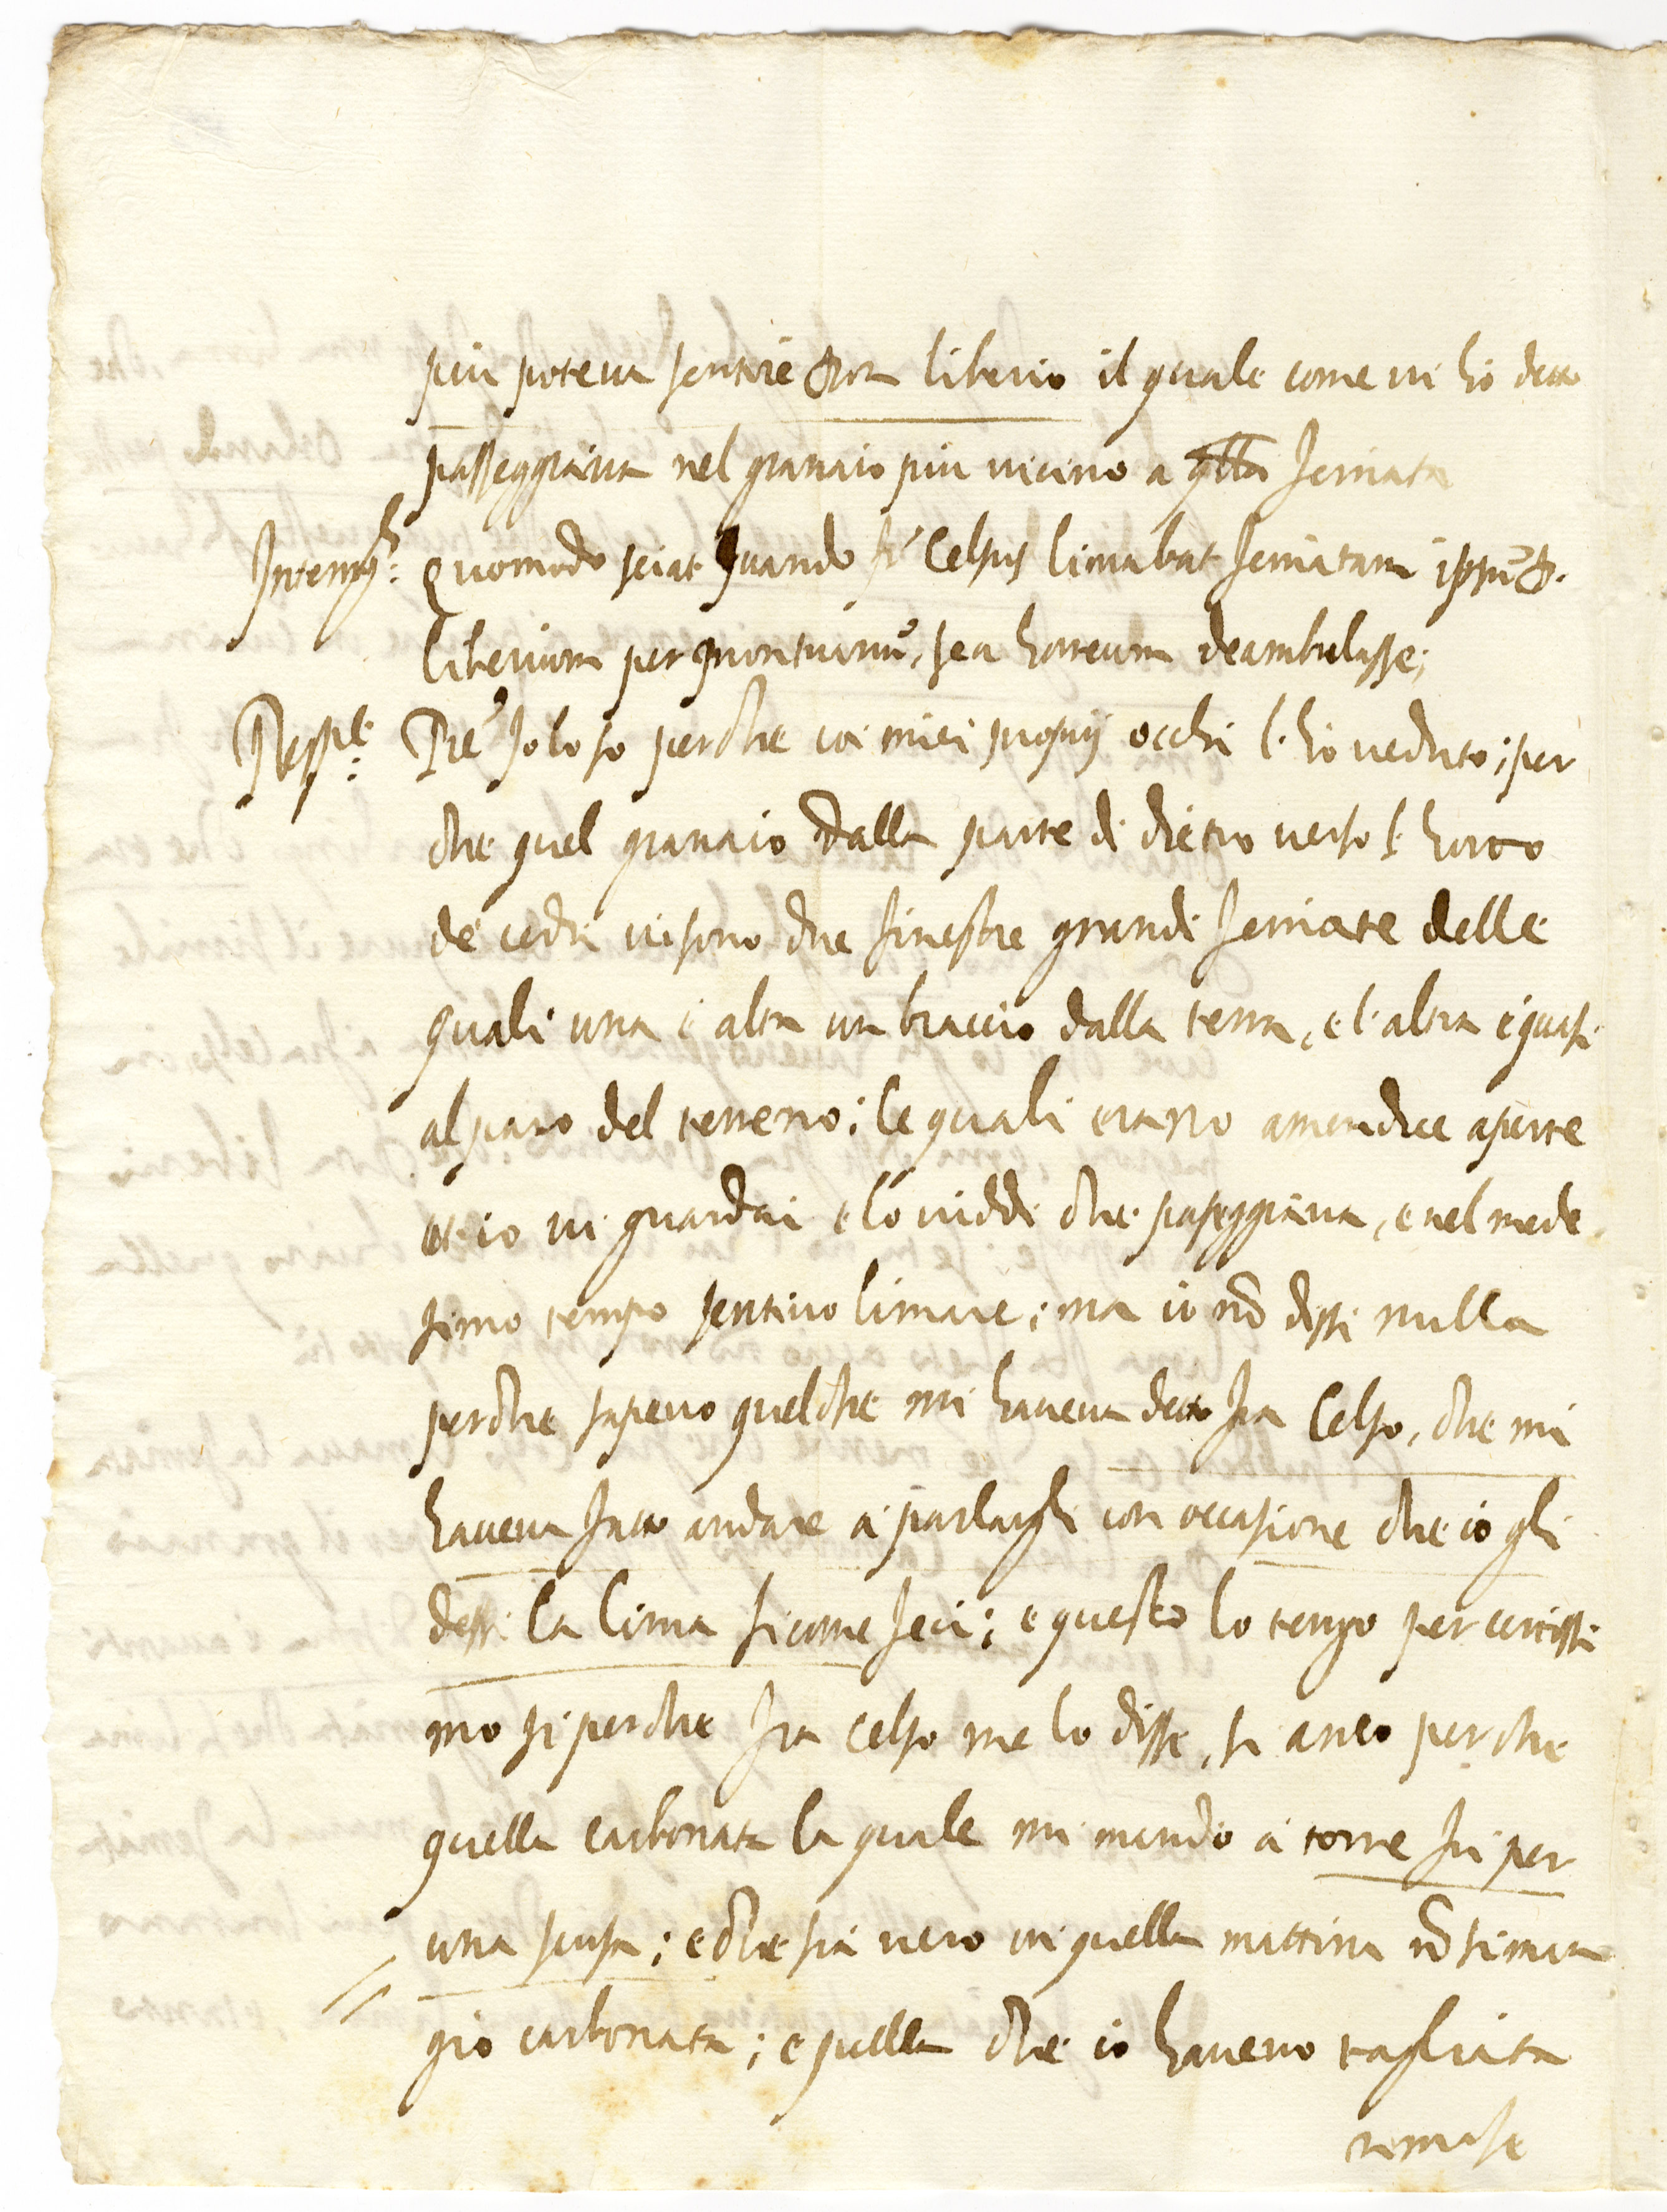 più poteva sentire Don Liberio il quale come vi hò detto
passeggiava nel granaio più vicino a qlla ferriata
Interrog.s quomodo sciat quando fr. Celsus limabat ferriatam ipsū D.
Liberium per gronturiū, seu horreum deambulasse;
Resp.t Pre Io lo so perche coi miei proprij occhi l'hò veduto; per
che quel granaio dalla parte di dietro verso l'horto
de cedri vi sono due finestre grandi ferriate delle
quali una è alta un braccio dalla terra, e l'altra è quasi
al paro del terreno; le quali erano amendue aperte
et io vi guardai e lo viddi che passeggiava, e nel mede
simo tempo sentivo limare; ma io nō dissi nulla
perche sapevo quelche mi haveva detto fra Celso, che mi
haveva fatto andare à parlargli con occasione che io gli
dessi la lima sicome feci; e questo lo tengo per certissi
mo si perche fra Celso me lo disse, si anco perche
quella carbonata la quale mi mandò à torre fù per
una scusa; e che sia vero in quella mattina nō si man
giò carbonata; e quella che io havevo tagliata
rimase